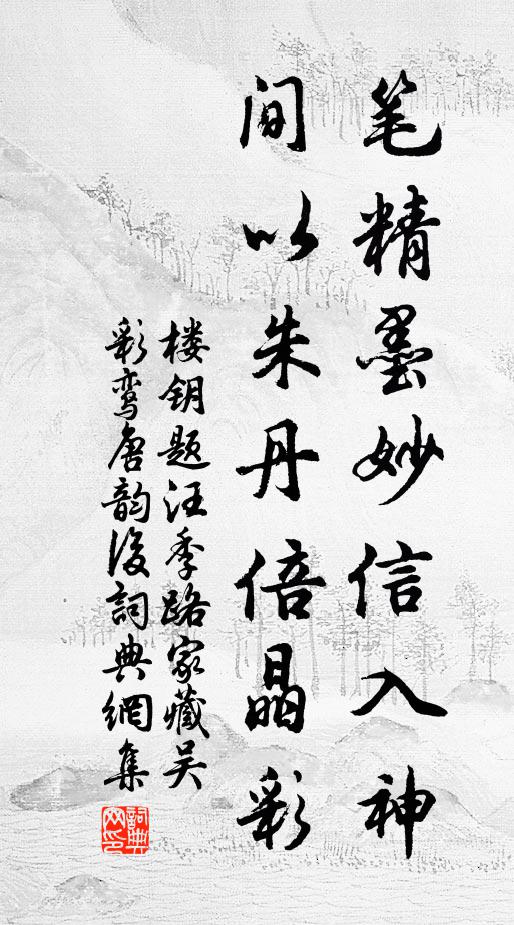 笔精墨妙信入神
间以朱丹倍晶彩
楼钥题汪季路家藏吴
彩鸾唐韵後詞典網集
詞典网印